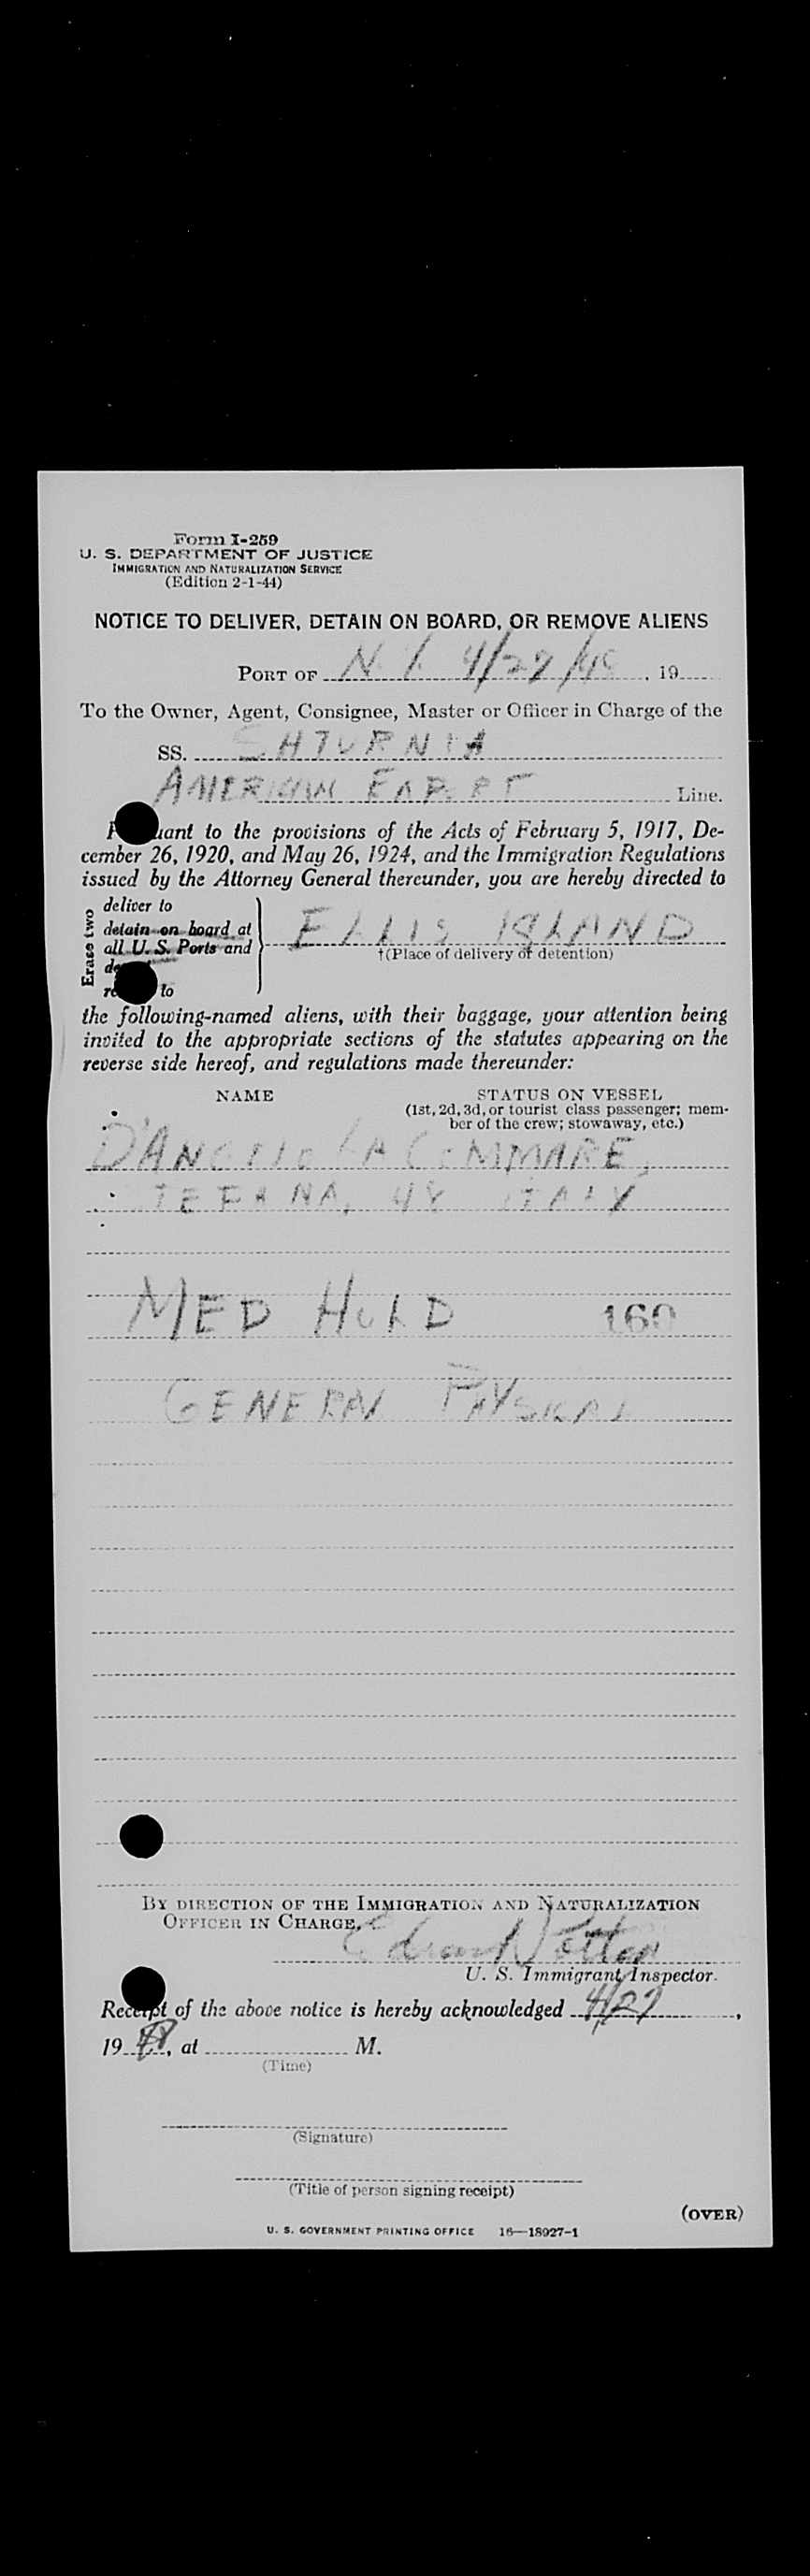 Form I-259
U. S. DEPARTMENT OF JUSTICE
IMMIGRATION AND NATURALIZATION SERVICE
(Edition 2-1-44)
NOTICE TO DELIVER, DETAIN ON BOARD, OR REMOVE ALIENS
PORT OF N Y 4/27/48, 19
To the Owner, Agent, Consignee, Master or Officer in Charge of the
SS. SATURNIA
AMERICAN EXPORT Line.
to the provisions of the Acts of February 5, 1917, De-
cember 26, 1920, and May 26, 1924, and the Immigration Regulations
issued by the Attorney General thereunder, you are hereby directed to
Erase two
deliver to
detain on board at
all U. S. Ports and
to
ELLIS ISLAND
†(Place of delivery or detention)
the following-named aliens, with their baggage, your attention being
invited to the appropriate sections of the statutes appearing on the
reverse side hereof, and regulations made thereunder:
NAME
STATUS ON VESSEL
(1st, 2d, 3d, or tourist class passenger; mem-
ber of the crew; stowaway, etc.)
D'ANGELO LA COMMARE,
48 ITALY
MED HOLD 160
GENERAL PHYSICAL
BY DIRECTION OF THE IMMIGRATION AND NATURALIZATION
OFFICER IN CHARGE.
U. S. Immigrant Inspector.
Receipt of the above notice is hereby acknowledged 4/27,
1948, at M.
(Time)
(Signature)
(Title of person signing receipt)
(OVER)
U. S. GOVERNMENT PRINTING OFFICE 16—18927-1